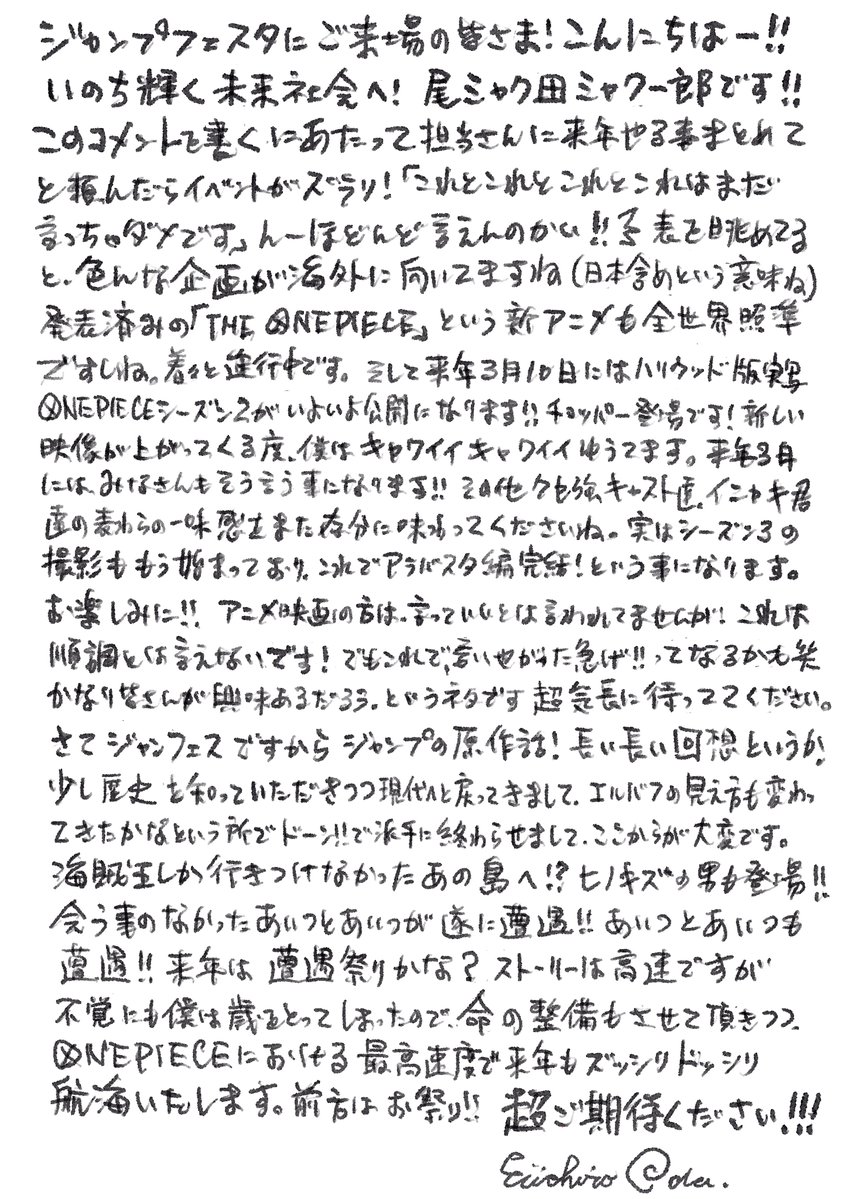 ジャンプフェスタにご来場の皆さま!こんにちはー!!
いのち輝く未来社会へ!尾ミャク田ミャク一郎です!!
このコメントを書くにあたって担当さんに来年やる事まとめて
と頼んだらイベントがズラリ!「これとこれとこれとこれはまだ
言っちゃダメです」んーほどんど言えんのかい!!予表を眺めてる
と、色んな企画が海外に向いてますね(日本含めという意味ね)
発表済みの「THE ONE PIECE」という新アニメも全世界照準
ですしね。着々と進行中です。そして来年3月10日にはハリウッド版実写
ONE PIECEシーズン2がいよいよ公開になります!!チョッパー登場です!新しい
映像が上がってくる度、僕はキャワイイキャワイイゆうてます。来年3月
には、みなさんもそう言う事になります!!その他クセ強キャスト達、イニャキ君
達の麦わらの一味感もまた存分に味わってくださいね。実はシーズン3の
撮影ももう始まっており、これでアラバスタ編完結!という事になります。
お楽しみに!!アニメ映画の方は、言っていいとは言われてませんが!これは
順調とは言えないです!でもこれで、言いやがった急げ!!ってなるかも笑
かなり皆さんが興味あるだろう、というネタです超気長に待っててください。
さてジャンフェスですからジャンプの原作話!長い長い回想というか、
少し歴史を知っていただきつつ現代へと戻ってきまして、エルバフの見え方も変わっ
てきたかなという所でドーン!!で派手に終わらせまして、ここからが大変です。
海賊王しか行きつけなかったあの島へ!?ヒノキズの男も登場!!
会う事のなかったあいつとあいつが遂に遭遇!!あいつとあいつも
遭遇!!来年は遭遇祭りかな?ストーリーは高速ですが
不覚にも僕は歳をとってしまったので、命の整備もさせて頂きつつ、
ONE PIECEにおける最高速度で来年もズッシリドッシリ
航海いたします。前方はお祭り!!超ご期待ください!!!
Eiichiro Oda.